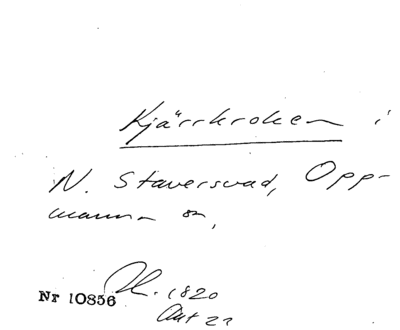 Kjärrkroken i
N. Staversvad, Opp-
manna sn,
Nr 10856
1820
Akt 22